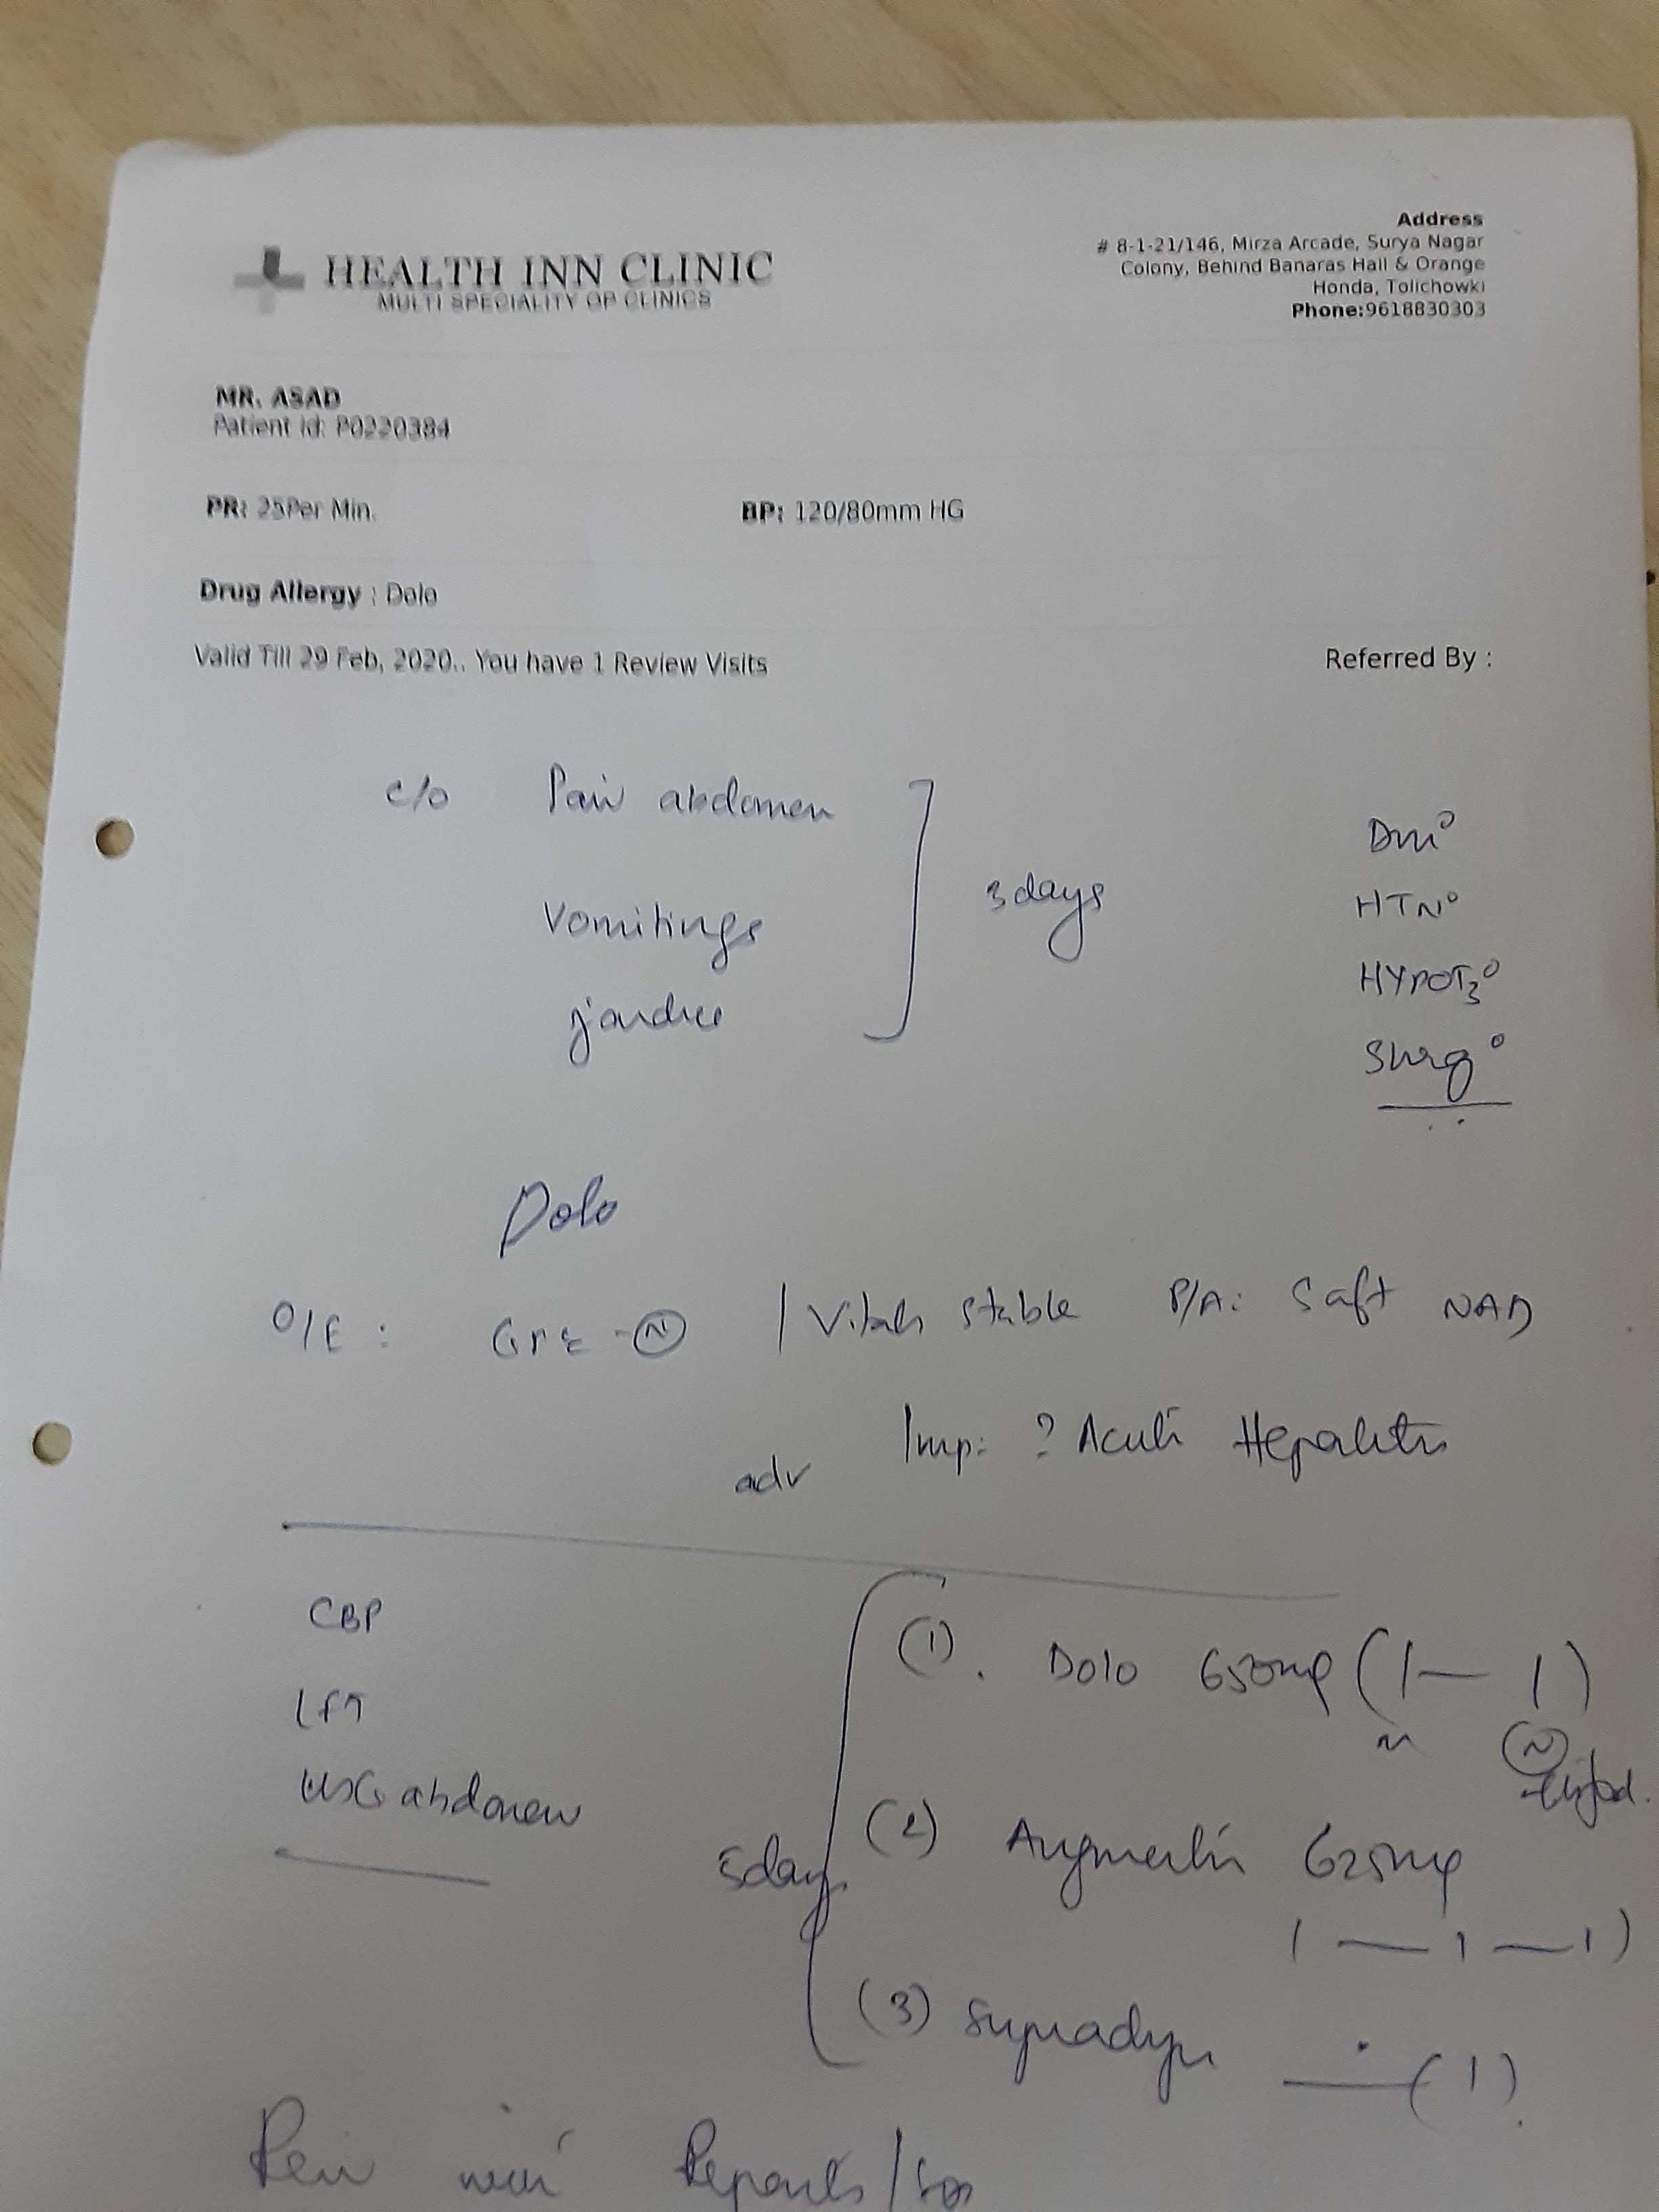 HEALTH INN CLINIC
MULTI SPECIALITY OP CLINICS
Address
# 8-1-21/146, Mirza Arcade, Surya Nagar
Colony, Behind Banaras Hall & Orange
Honda, Tolichowki
Phone:9618830303
MR. ASAD
Patient Id: P0220384
PR: 25Per Min. BP: 120/80mm HG
Drug Allergy : Dolo
Valid Till 29 Feb, 2020.. You have 1 Review Visits Referred By :
c/o Pain abdomen
Vomitings
3 days
DM°
HTN°
HYPOT3°
Surg°
Dolo
O/E : (N) / Vitals stable P/A: Soft NAD
Imp: ? Acute Hepatitis
adv
CBP
LFT
USG abdomen
5 days
(1). Dolo 650mg (1— 1)
(2) Augmentin 625mg
1 — 1 — 1)
(3) Supradyn — (1)
Reports / sos